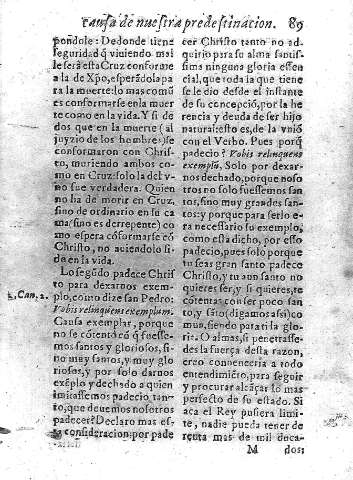 causa de nuestra predestinacion. 89
pondole: Dedonde tiene
seguridad q̃ viviendo mal
le será esta Cruz conforme
a la de Xpo, esperádola pa
ra la muerte: lo mas comũ
es conformarse en la muer
te como en la vida. Y si de
dos que en la muerte (al
juyzio de los hombres) se
conformaron con Chris-
to, muriendo ambos co-
mo en Cruz: solo la del v-
no fue verdadera. Quien
no ha de morir en Cruz,
sino de ordinario en su ca
ma (sino es derrepente) co
mo espera cõformarse cõ
Christo, no auiendolo si-
do en la vida.
Lo segũdo padece Chris
to para dexarnos exem-
plo, como dize san Pedro:
1. Can. 2.
Vobis relinquens exemplum.
Causa exemplar, porque
no se cõtentó cõ q̃ fuesse-
mos santos y gloriosos, si-
no muy santos, y muy glo
riosos, y por solo darnos
exẽplo y dechado a quien
imitassemos padecio tan-
to, que deuemos nosotros
padecer? Declaro mas es-
ta consideracion: por pade
cer Christo tanto no ad-
quirio para su alma santis-
sima ninguna gloria essen
cial, que toda la que tiene
se le dio desde el instante
de su concepció, por la he
rencia y deuda de ser hijo
natural: esto es, de la vnió
con el Verbo. Pues porq̃
padecio? Vobis relinquens
exemplũ. Solo por dexar-
nos dechado, porque noso
tros no solo fuessemos san
tos, sino muy grandes san-
tos: y porque para serlo e-
ra necessario su exemplo,
como esta dicho, por esso
padecio, pues solo porque
tu seas gran santo padece
Christo, y tu aun santo no
quieres ser, y si quieres, te
cõtentas con ser poco san
to, y sãto (digamos assi) co
mun, siendo para ti la glo-
ria. O almas, si penetrasse-
des la fuerça desta razon,
creo conuenceria a todo
entendimiẽto, para seguir
y procurar alcãçar lo mas
perfecto de su estado. Si
aca el Rey pusiera limi-
te, nadie pueda tener de
renta mas de mil duca-
M dos: